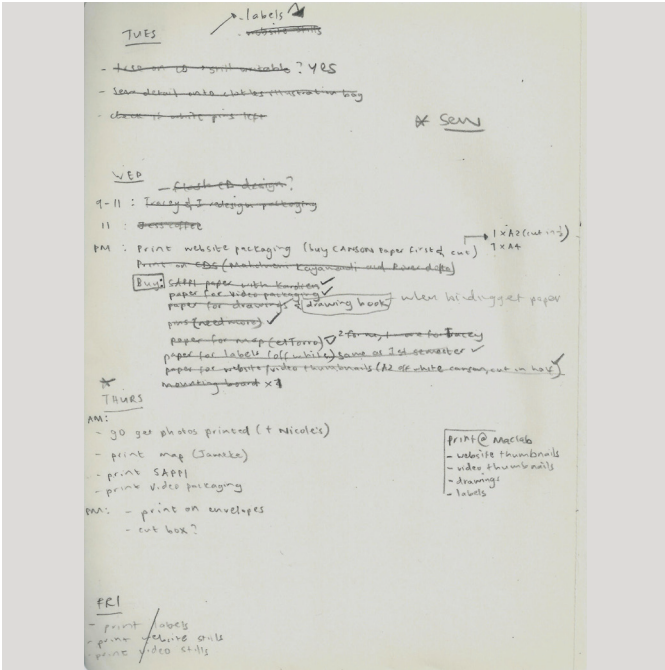 labels
website stills
TUES
? YES
- sew detail onto clothes illustration bag
- check if white pins left
* Sew
WED
- Flash CD design?
9-11 : Tracey & I redesign packaging
11 : Jess coffee
PM : Print website packaging (buy CANSON paper first & cut)
1 x A2 (cut in ½)
? x A4
Print on CDS (
Buy: SAPPI paper with
paper for video packaging
paper for drawings & drawing book when binding get paper
pins (need more)
paper for map (el Torro) 2 for me, 1 more for Tracey
paper for labels (off white) same as 1st semester
paper for website/video thumbnails (A2 off white canson, cut in half)
mounting board x
*
THURS
AM:
- go get photos printed (+ Nicole's)
- print map (
- print SAPPI
- print video packaging
PM: - print on envelopes
- cut box?
print @ Maclab
- website thumbnails
- video thumbnails
- drawings
- labels
FRI
- print labels
- print website stills
- print video stills